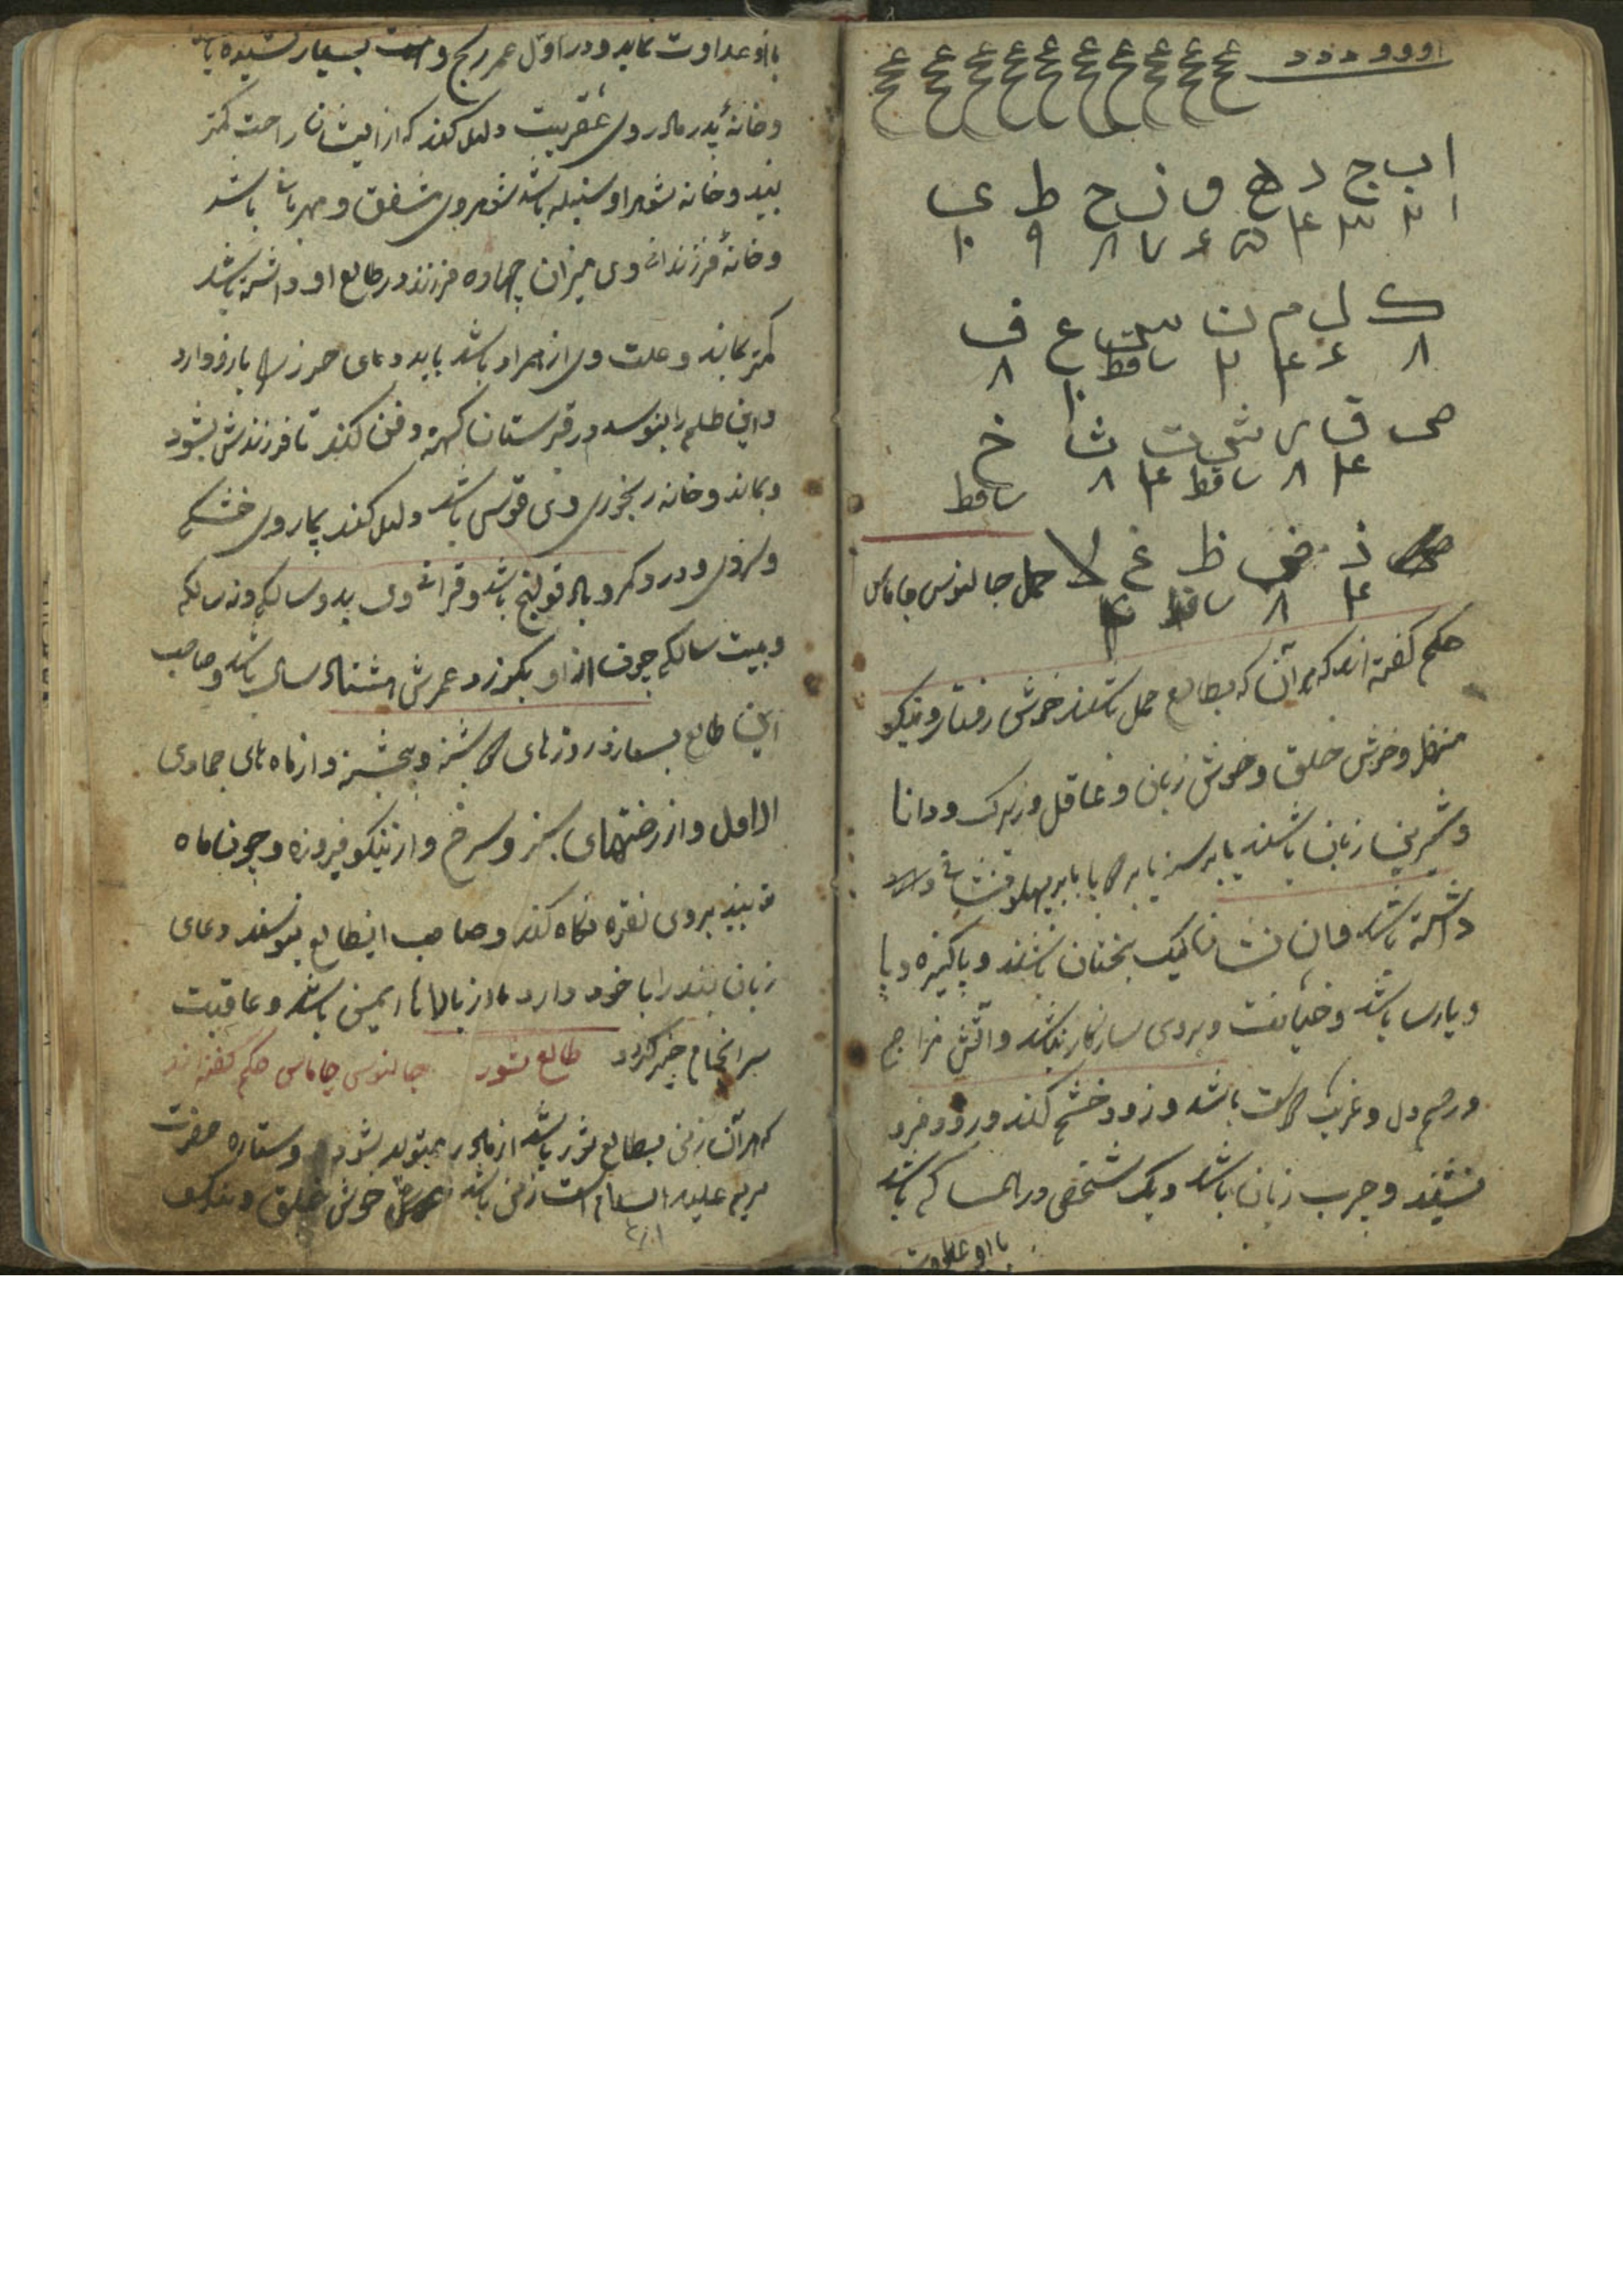 ا و و و د د د د
ع ع ع ع ع ع ع ع ع
ا ب ج د ه و ز ح ط ی
۱ ۲ ۳ ۴ ۵ ۶ ۷ ۸ ۹ ۱۰
ک ل م ن س ع ف
۸ ۶ ۴ ۲ ساقط ۱۰ ۸
ص ق ر ش ت ث خ
۴ ۸ ساقط ۴ ۸ ساقط
ذ ض ظ غ لا حمل جالنوس جاماس
۴ ۸ ساقط
حکم گفته اند که هر آن که بطالع حمل باشند خوش رفتار و نیکو
منظر و خوش خلق و خوش زبان و عاقل و زیرک و دانا
و شیرین زبان باشند یا بر سر یا بر یا بر پهلو نشانی
داشته باشد و آن نشان نیک بختان باشند و پاکیزه و با
و پارسا باشد و خیانت و بدی سازکار نباشد و آتش مزاج
و رحم دل و غریب باشد و زود خشم کند و زود فرو
نشیند و چرب زبان باشد و یک شخصی در همسا که باشد
با او عداوت
با او عداوت نماید و در اول عمر رنج و بسیار کشیده
و خانهٔ پدر مادر وی عقربیت دلیل کند که از ایشان راحت کمتر
بیند و خانه شوهر او سنبله باشد شوهر وی شفق و مهربان باشد
و خانهٔ فرزندان وی میزان چهارده فرزند در طالع او داشته باشد
کمتر بماند و علت وی از همزاد باشد باید دعای حرز با خود دارد
و این طلسم را بنویسد در قبرستان کهنه دفن کند تا فرزندش بشود
و بماند و خانه رنجوری وی قوس باشد دلیل کند بیماری وی خشکی
و سردی و درد کمر و باد قولنج باشد و قران وی بدو سالکی و نه سالکی
و بیست سالکی چون از او بگذرد عمرش هشتاد سال باشد و صاحب
این طالع بسازد روزهای شنبه و پنجشنبه و از ماه های جمادی
الاول و از رختهای سبز و سرخ و از نگین فیروزه و چون ماه
نو بیند بروی نقره نگاه کند و صاحب این طالع بنویسند دعای
زبان بند را با خود دارد تا از بلاها ایمن باشد و عاقبت
سرانجام خیر گردد طالع ثور جالنوس جاماس حکم گفته اند
که هر آن زنی بطالع ثور باشد از مادر متولد بشود و ستاره حضرت
مریم علیه السلام است زنی باشد خوش خلق و نیکو